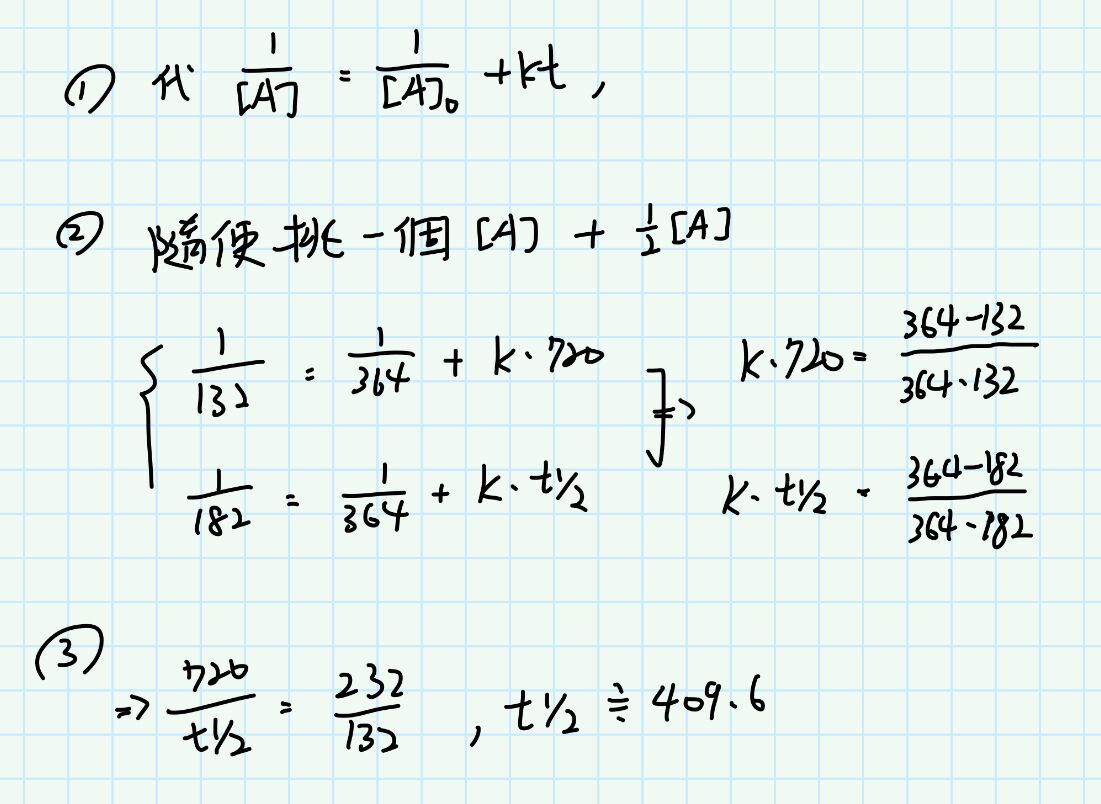 ① 代 1/[A] = 1/[A]₀ + kt ,
② 隨便挑一個 [A] + 1/2 [A]
{ 1/132 = 1/364 + k·720 ] ⇒ k·720 = (364-132)/(364·132)
1/182 = 1/364 + k·t1/2 k·t1/2 = (364-182)/(364·182)
③
⇒ 720/t1/2 = 232/132 , t1/2 ≒ 409.6